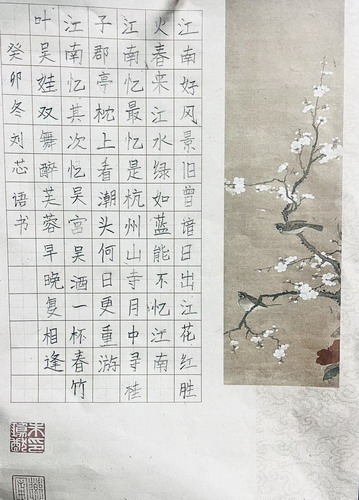 江南好风景旧曾谙日出江花红胜
火春来江水绿如蓝能不忆江南
江南忆最忆是杭州山寺月中寻桂
子郡亭枕上看潮头何日更重游
江南忆其次忆吴宫吴酒一杯春竹
叶吴娃双舞醉芙蓉早晚复相逢
癸卯冬刘芯语书